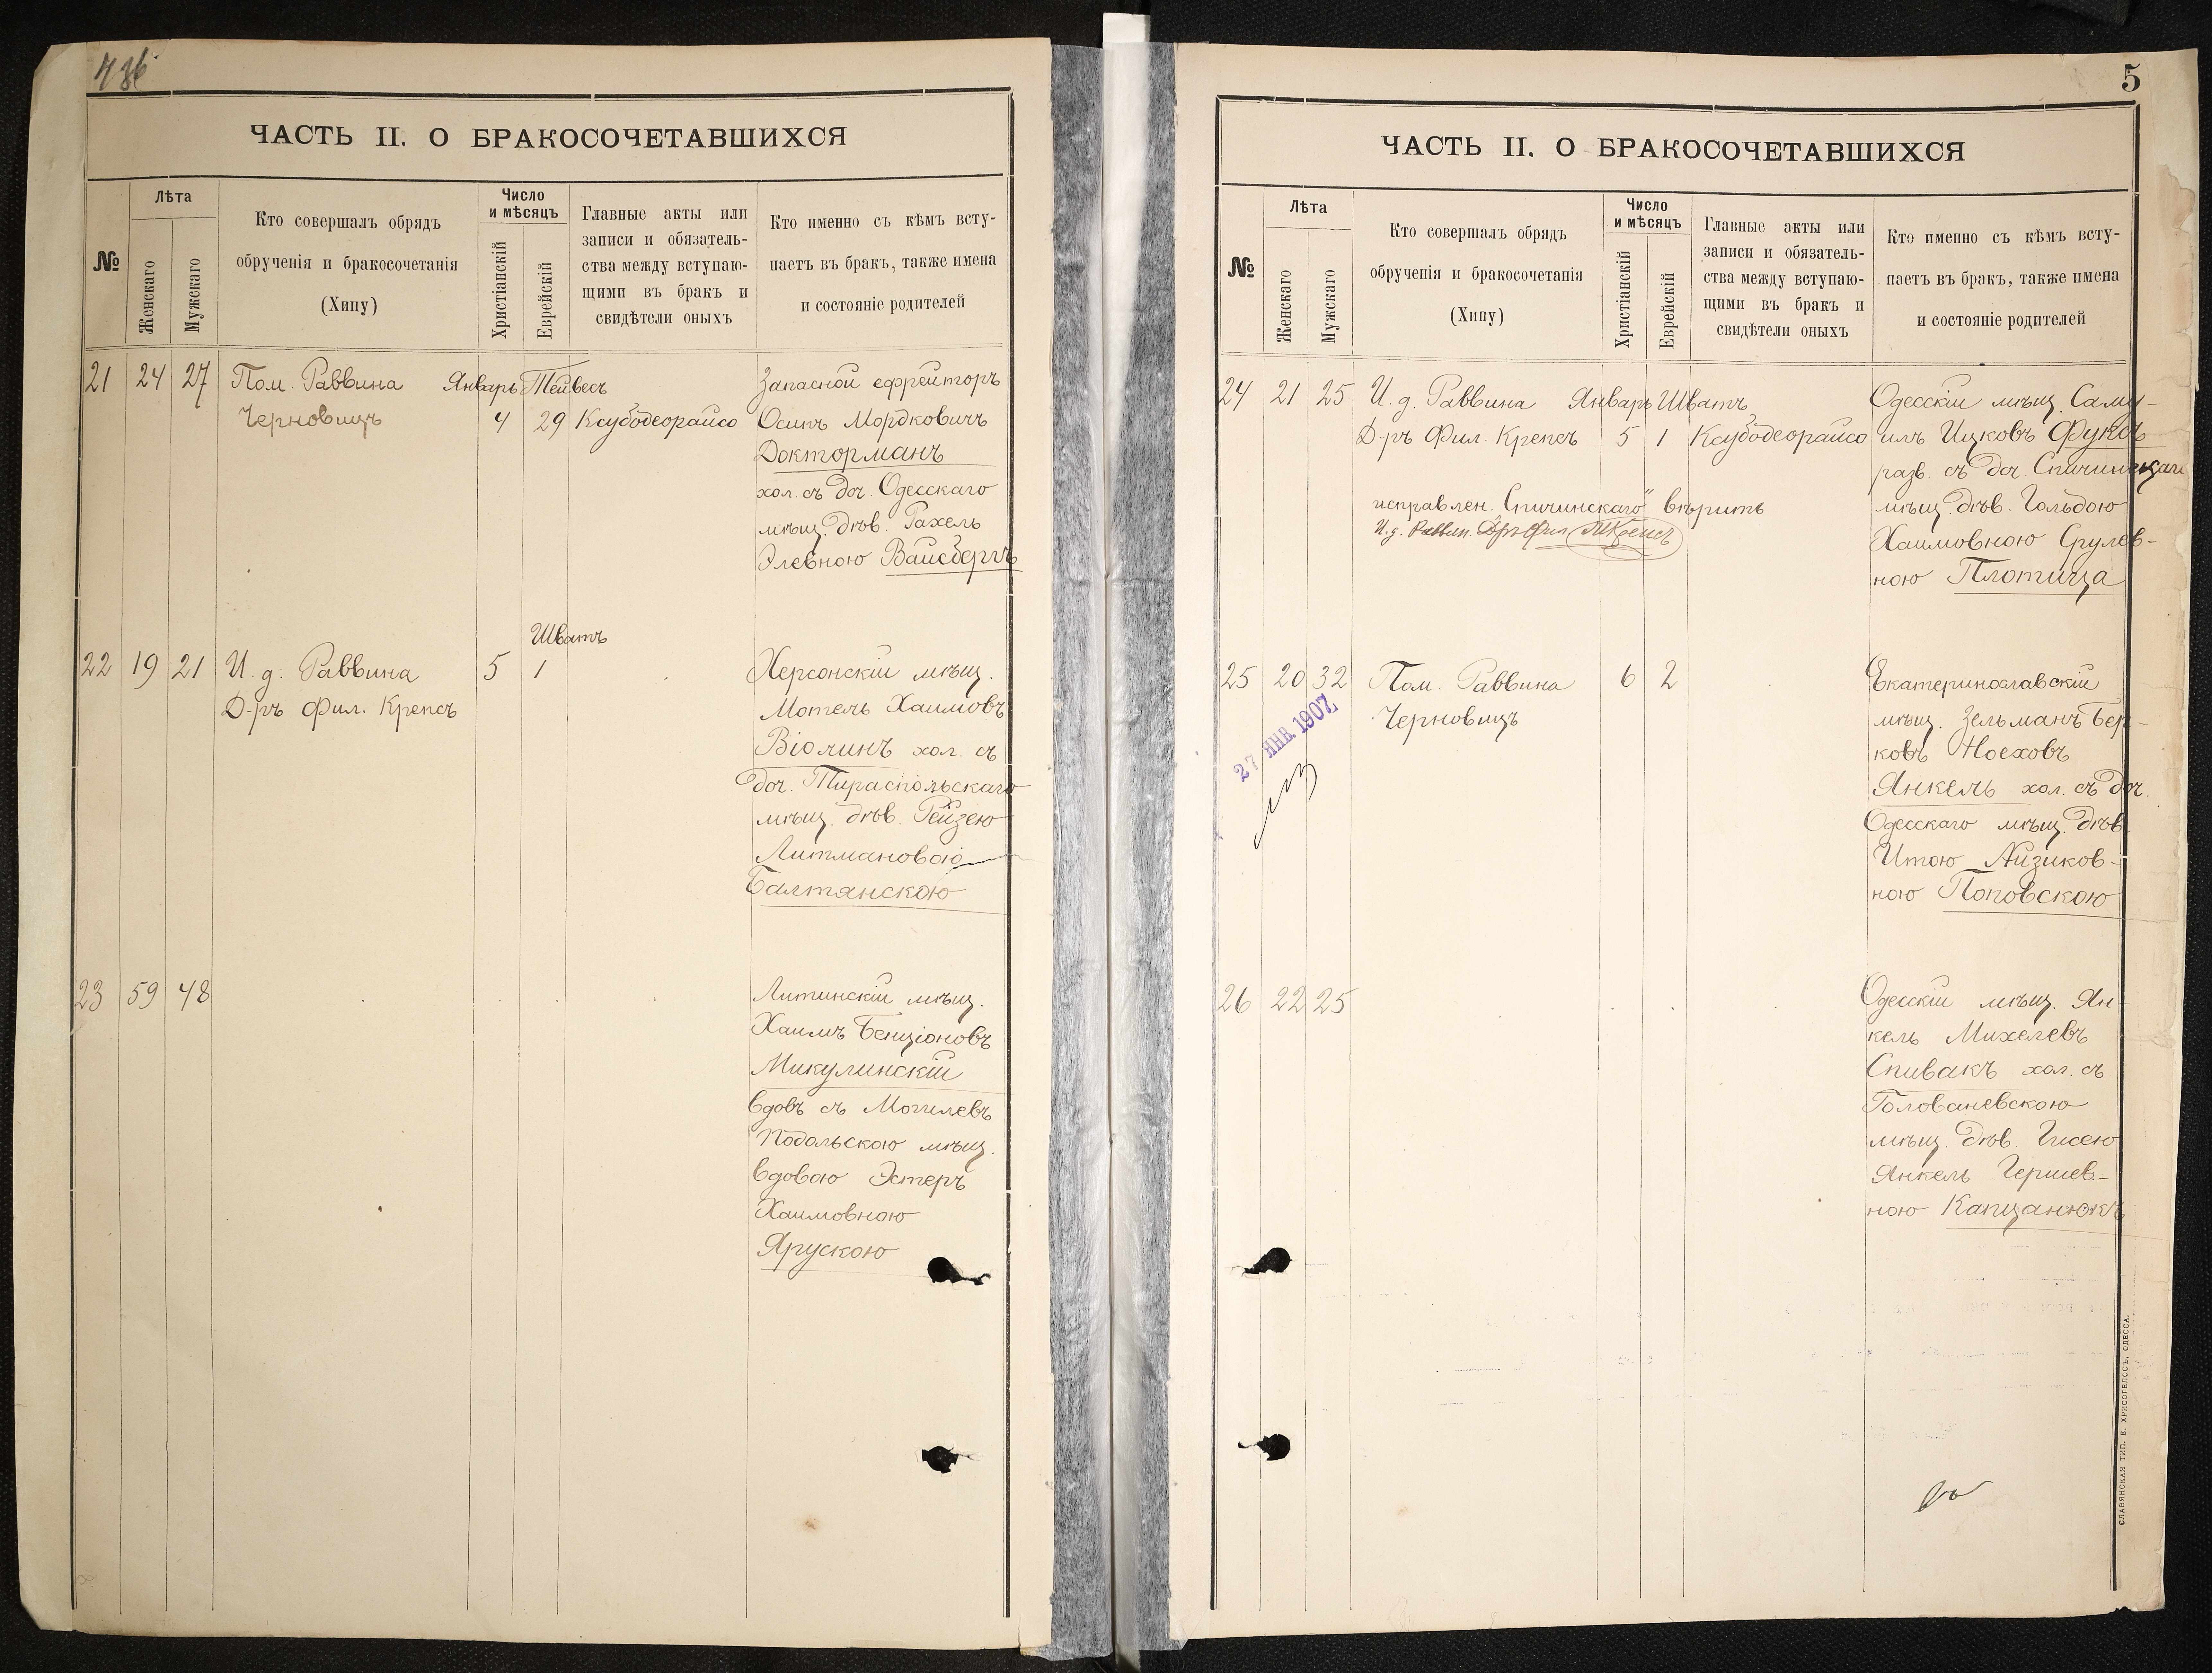 436
ЧАСТЬ II. О БРАКОСОЧЕТАВШИХСЯ
№
Лѣта
Женскаго
Мужскаго
Кто совершалъ обрядъ
обрученія и бракосочетанія
(Хипу)
Число
и мѣсяцъ
Христіанскій
Еврейскій
Главные акты или
записи и обязатель-
ства между вступаю-
щими въ бракъ и
свидѣтели оныхъ
Кто именно съ кѣмъ всту-
паетъ въ бракъ, также имена
и состояніе родителей
21 24 27 Пом. Раввина Январь Тейвесъ Запасной ефрейторъ
Черновицъ 4 29 Ксубодеорайсо Осипъ Мордковичъ
Докторманъ
хол. съ доч. Одесскаго
мѣщ. дѣв. Рахель
Элевною Вайсбергъ
Шватъ
22 19 21 И. д. Раввина 5 1 Херсонскій мѣщ.
Д-ръ Фил. Крепсъ Мотель Хаимовъ
Віолинъ хол. съ
доч. Тираспольскаго
мѣщ. дѣв. Рейзею
Литмановою
Балтянскою
23 59 48 Литинскій мѣщ.
Хаимъ Бенціоновъ
Микулинскій
вдовъ съ Могилевъ
Подольскою мѣщ.
вдовою Эстеръ
Хаимовною
Ярускою
5
ЧАСТЬ II. О БРАКОСОЧЕТАВШИХСЯ
№
Лѣта
Женскаго
Мужскаго
Кто совершалъ обрядъ
обрученія и бракосочетанія
(Хипу)
Число
и мѣсяцъ
Христіанскій
Еврейскій
Главные акты или
записи и обязатель-
ства между вступаю-
щими въ бракъ и
свидѣтели оныхъ
Кто именно съ кѣмъ всту-
паетъ въ бракъ, также имена
и состояніе родителей
24 21 25 И. д. Раввина Январь Шватъ Одесскій мѣщ. Саму-
Д-ръ Фил. Крепсъ 5 1 Ксубодеорайсо илъ Ицковъ Фуксъ
разв. съ доч. Спичинецкаго
исправлен. „Спичинскаго" вѣрить мѣщ. дѣв. Гольдою
И. д. Раввин. Др. Фил. Крепсъ Хаимовною Срулев-
ною Плотица
25 20 32 Пом. Раввина 6 2 Екатеринославскій
Черновицъ мѣщ. Зельманъ Бер-
27 ЯНВ 1907 ковъ Ноеховъ
Янкель хол. съ доч.
Одесскаго мѣщ. дѣв.
Итою Айзиков-
ною Поповскою
26 22 25 Одесскій мѣщ. Ян-
кель Михелевъ
Спивакъ хол. съ
Голованевскою
мѣщ. дѣв. Гисею
Янкель Гершев-
ною Капцанюкъ
СЛАВЯНСКАЯ ТИП. Е. ХРИСОГЕЛОСЪ, ОДЕССА.